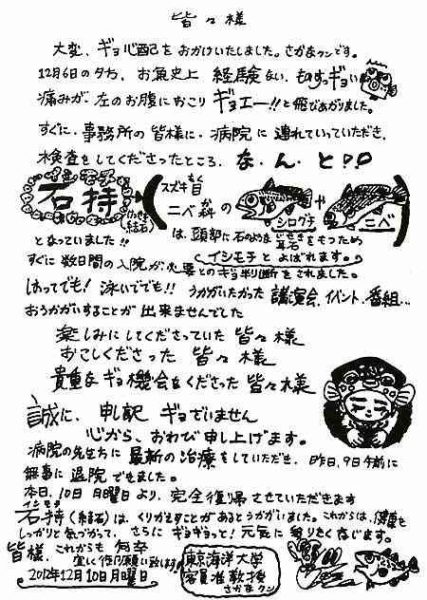 皆々様
大変、ギョ心配を おかけいたしました。さかなクンです。
12月6日の夕方、お魚史上 経験ない、ものすっギョい
痛みが、左のお腹におこり ギョエー!!と飛びあがりました。
すぐに、事務所の皆様に、病院に連れていっていただき、
検査をしてくださったところ、な・ん・と!?
石持
(けっせき 結石)
スズキ目 もく
ニベ科 か の シログチ や ニベ
は、頭部に石のような 耳石 じせき をもつため
イシモチと よばれます。
となっていました!!
すぐに 数日間の入院が必要とのギョ判断をされました。
はってでも! 泳いででも!! うかがいたかった 講演会、イベント、番組…
おうかがいすることが 出来ませんでした
楽しみにしてくださっていた 皆々様
おこしくださった 皆々様
貴重なギョ機会をくださった 皆々様
誠に、申し訳 ギョざいません
心から、おわび申し上げます。
病院の先生方に 最新の治療をしていただき、昨日、9日午前に
無事に 退院できました。
本日、10日 月曜日より、完全復帰させていただきます
イシモチ
石持(結石)は、くりかえすことがあるとうかがいました。これからは、健康を
しっかりと気づかって、さらに ギョギョっと! 元気に 参りたく存じます。
皆様、これからも 何卒
宜しく御願い致します
2012年12月10日月曜日
東京海洋大学
客員准教授
さかなクン